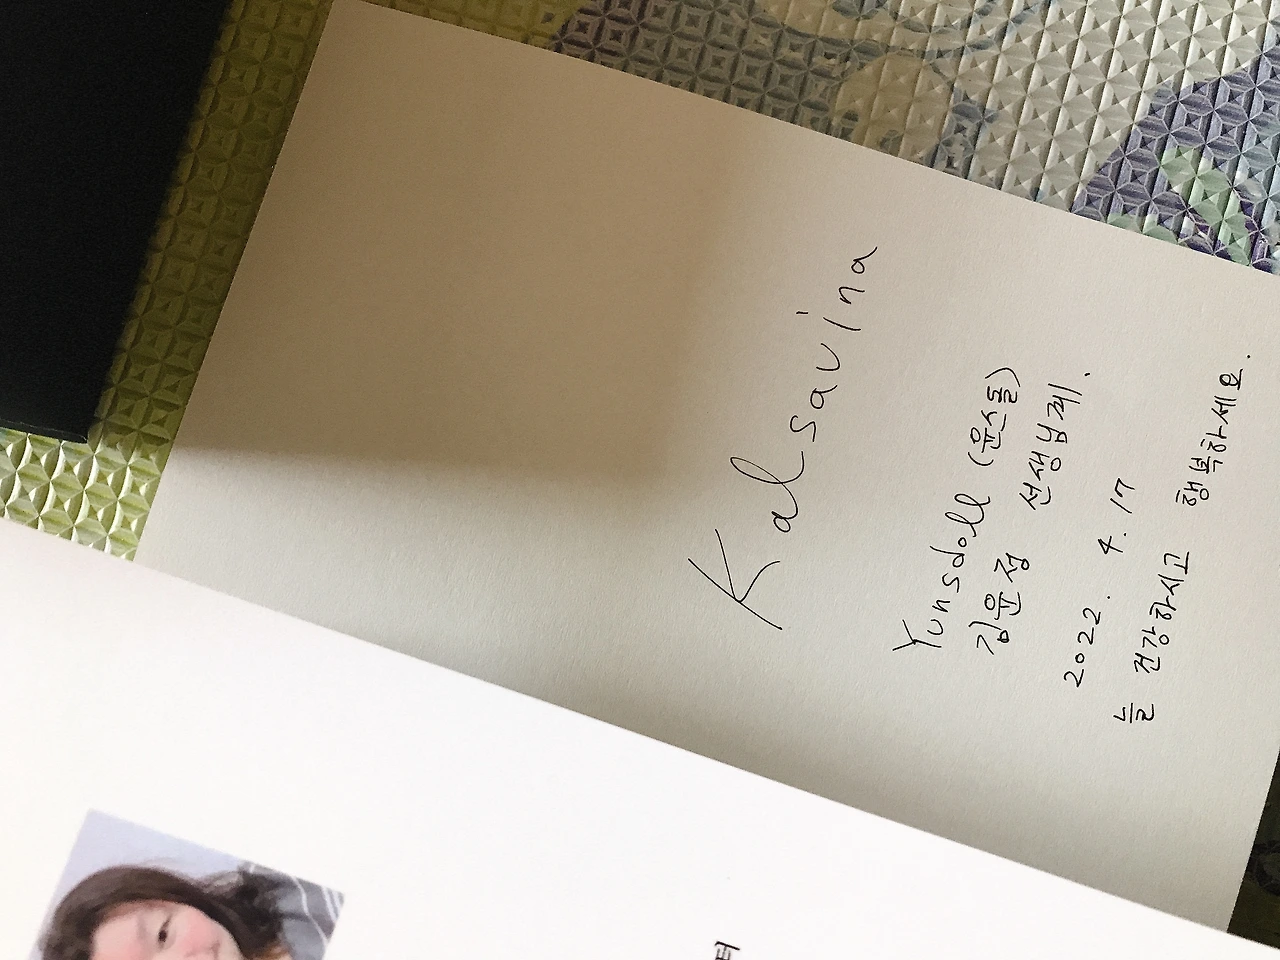 Kalsavina
Yunsdoll (윤스돌)
김윤정 선생님께.
2022. 4. 17
늘 건강하시고 행복하세요.
터